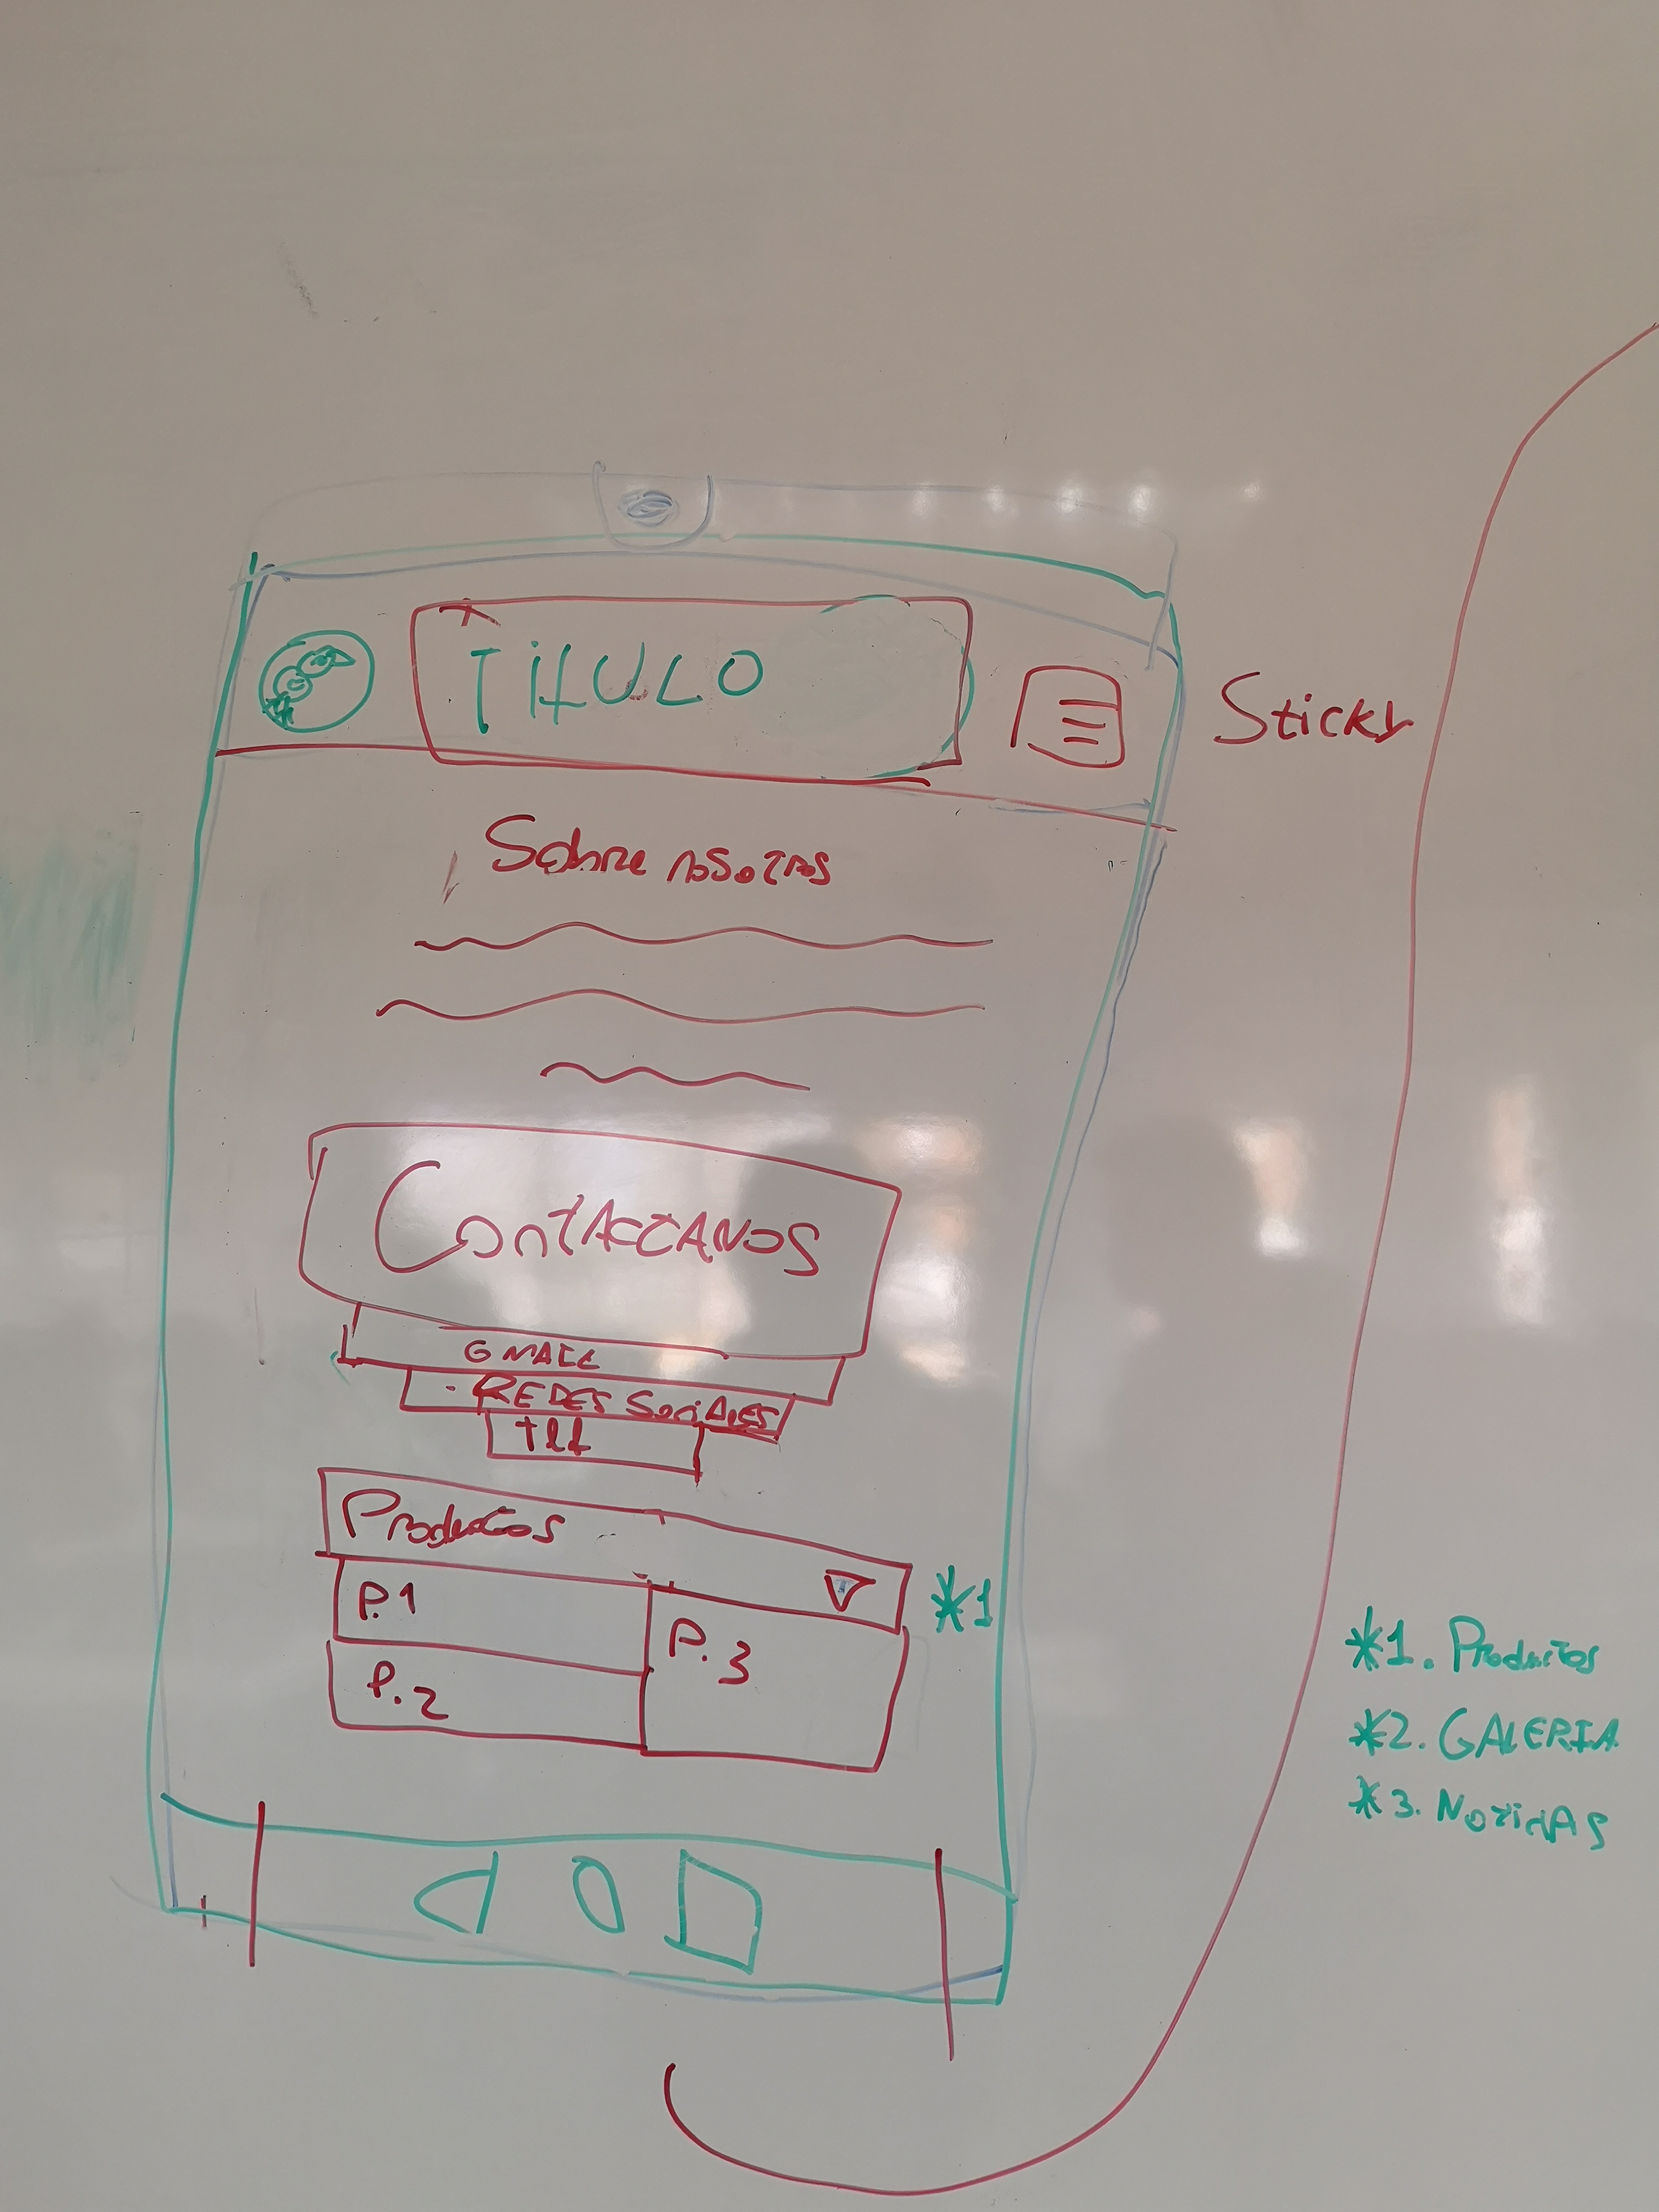 TÍtULO
Sticky
Sobre nosotros
CONTACTANOS
GMAIL
- REDES SociALES
tlf
Productos
P.1
P.2
P.3
*1
*1. Productos
*2. GALERIA
*3. NOticiAS